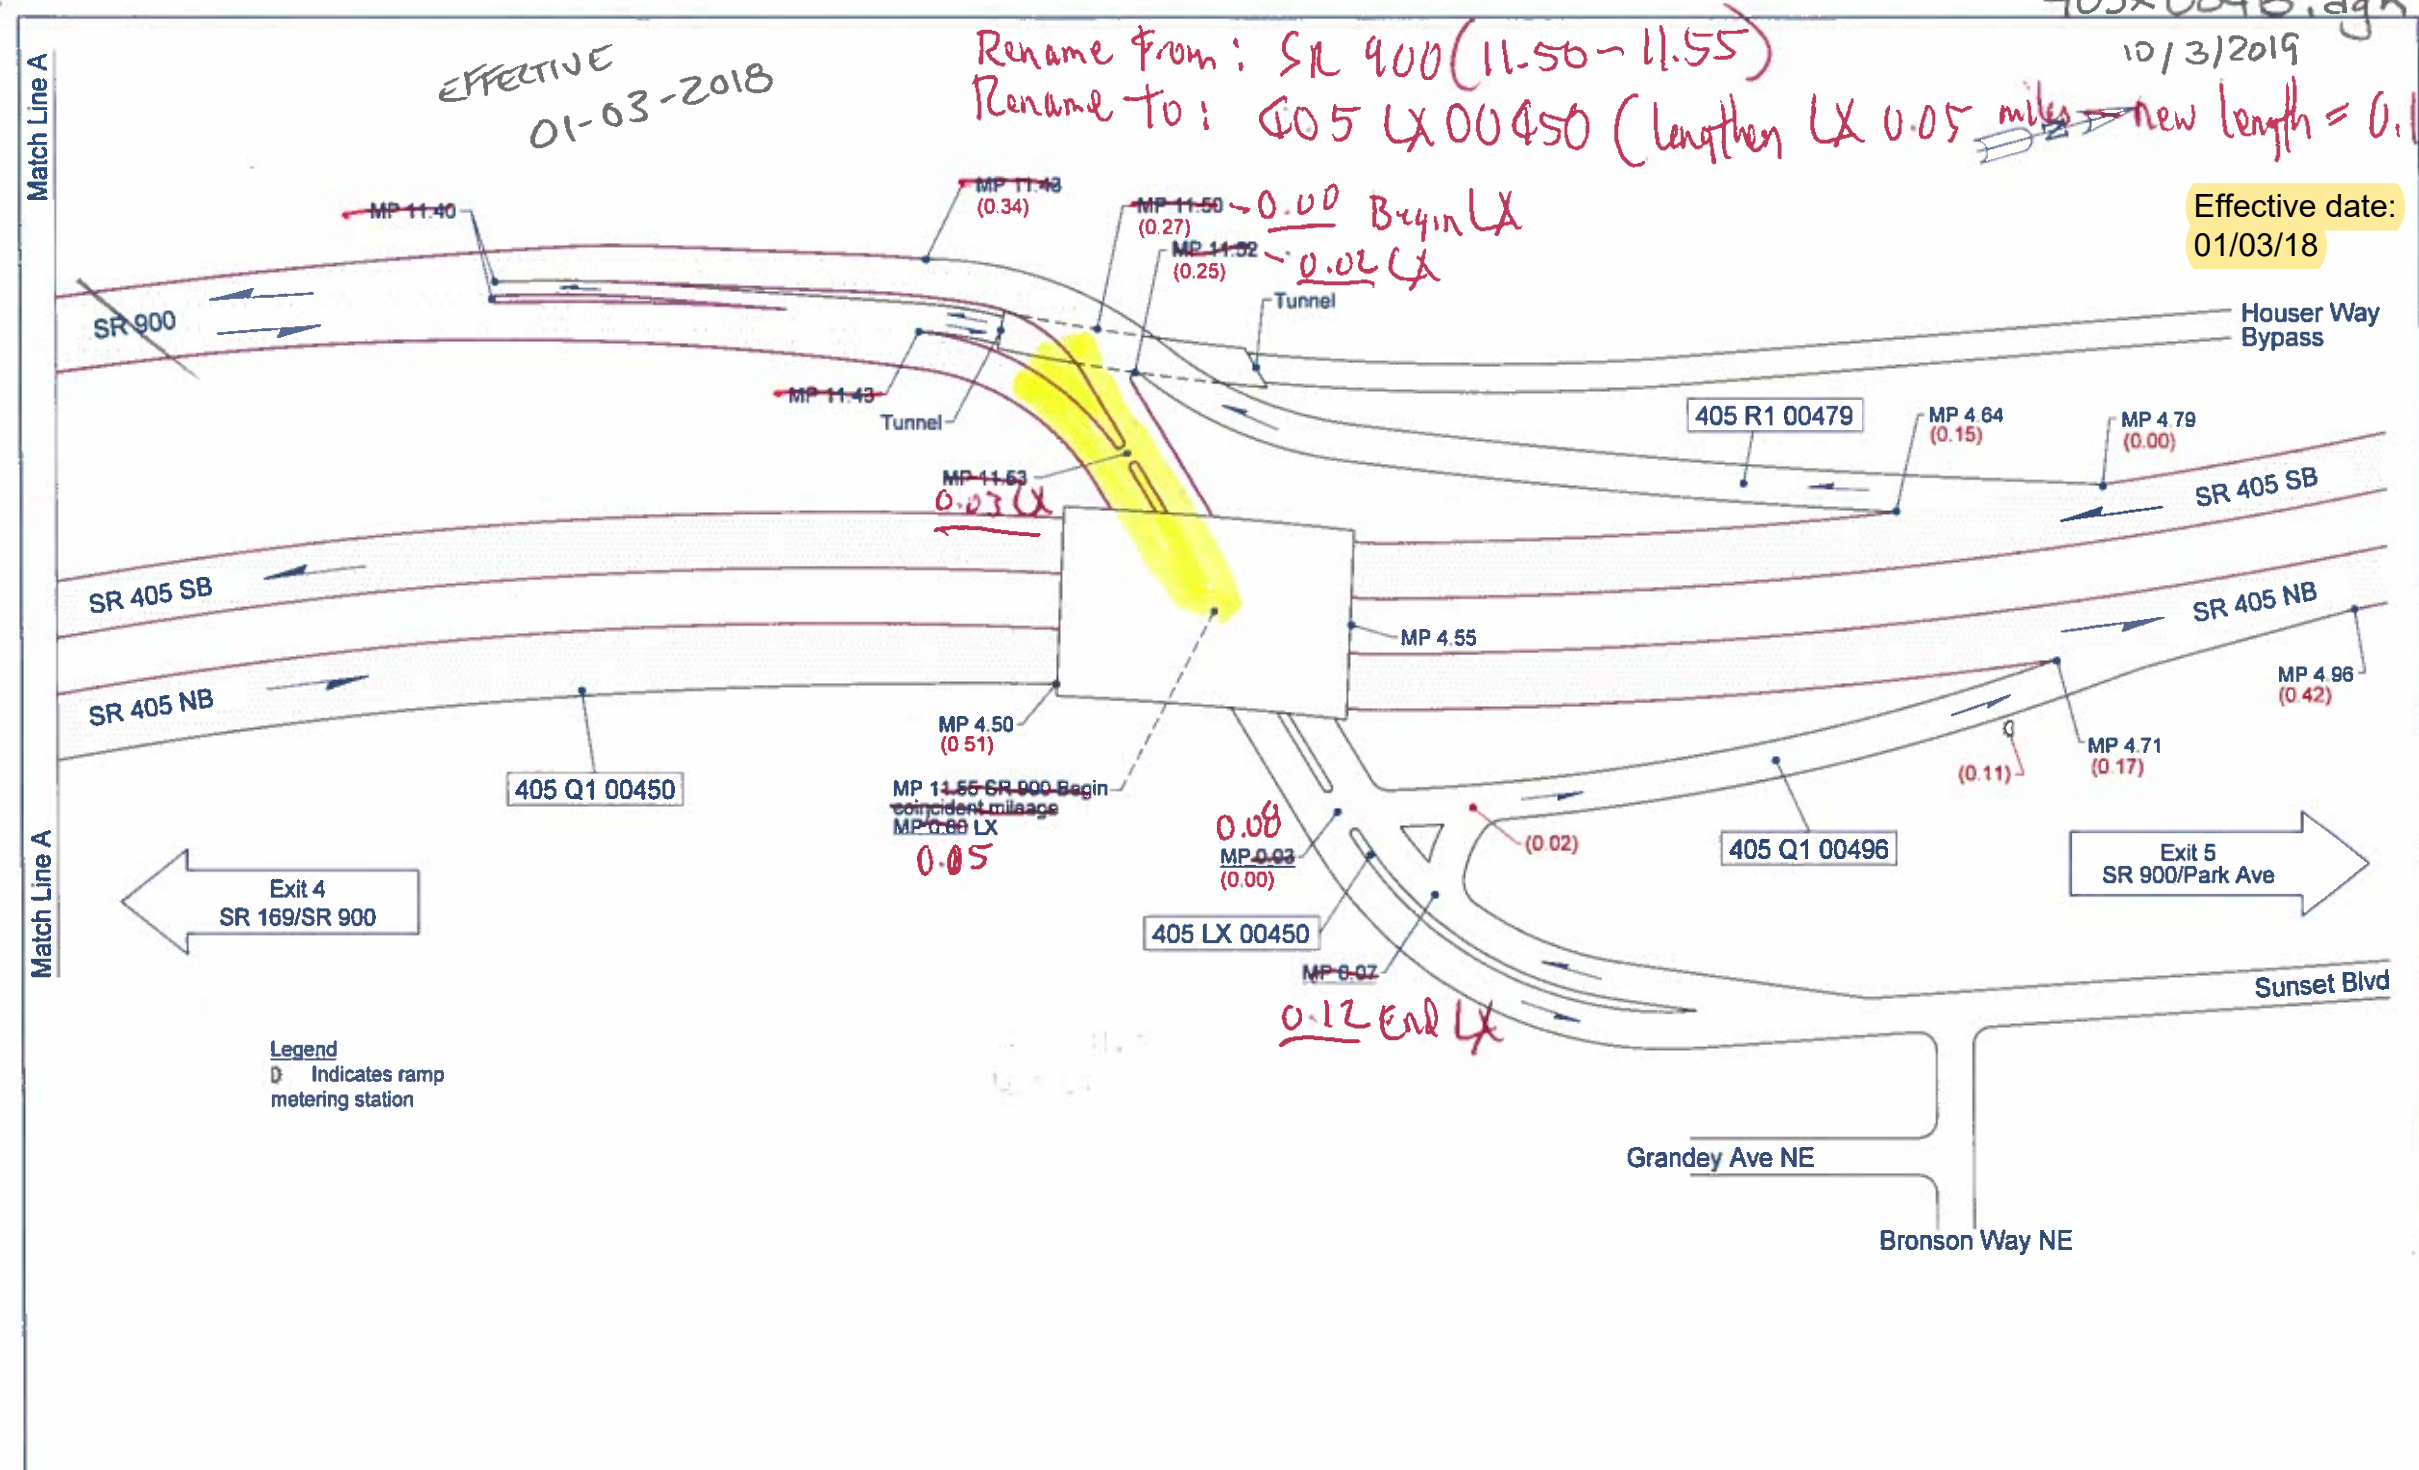 10/3/2019
EFFECTIVE
01-03-2018
Rename From: SR 900 (11.50-11.55)
Rename to: 405 LX 00450 (lengthen LX 0.05 miles - new length = 0.1
N
Effective date:
01/03/18
Match Line A
MP 11.40
MP 11.43
(0.34)
MP 11.50
(0.27)
0.00 Begin LX
MP 11.52
(0.25)
0.02 LX
Tunnel
Houser Way
Bypass
SR 900
MP 11.43
Tunnel
405 R1 00479
MP 4.64
(0.15)
MP 4.79
(0.00)
MP 11.53
0.03 LX
SR 405 SB
SR 405 SB
SR 405 NB
MP 4.55
SR 405 NB
MP 4.96
(0.42)
MP 4.50
(0.51)
MP 4.71
(0.17)
(0.11)
405 Q1 00450
MP 11.55 SR 900 Begin
coincident mileage
MP 0.00 LX
0.05
0.08
MP 0.03
(0.00)
(0.02)
405 Q1 00496
Exit 5
SR 900/Park Ave
Match Line A
Exit 4
SR 169/SR 900
405 LX 00450
MP 0.07
0.12 End LX
Sunset Blvd
Legend
D Indicates ramp
metering station
Grandey Ave NE
Bronson Way NE